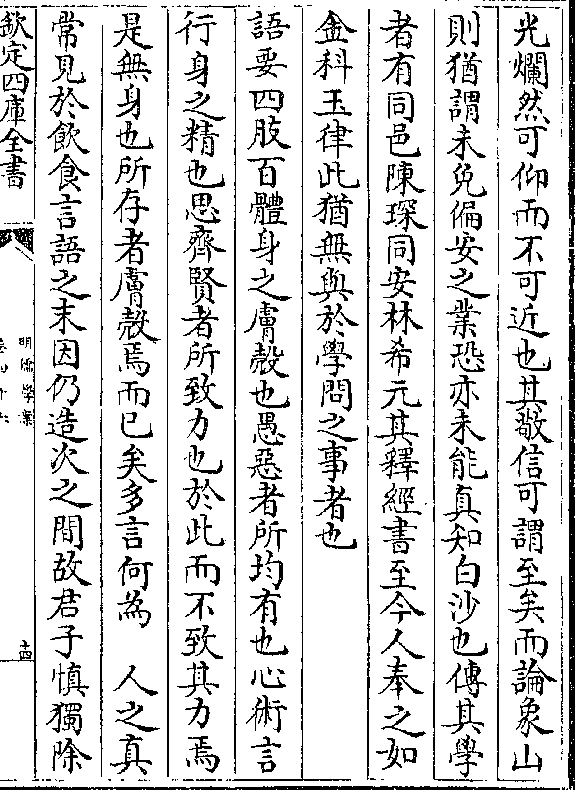 光爛然可仰而不可近也其敬信可謂至矣而論象山
則猶謂未免偏安之業恐亦未能真知白沙也傳其學
者有同邑陳琛同安林希元其釋經書至今人奉之如
金科玉律此猶無與於學問之事者也
語要四肢百體身之膚殼也愚惡者所均有也心術言
行身之精也思齊賢者所致力也於此而不致其力焉
是無身也所存者膚殼焉而已矣多言何為　人之真
常見於飲食言語之末因仍造次之間故君子慎獨除
欽定四庫全書
明儒學案
十四